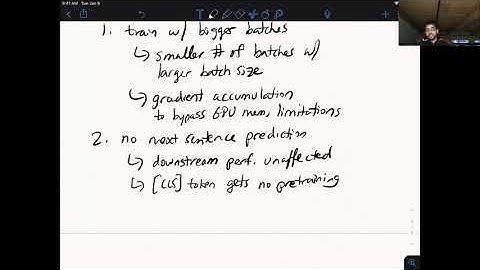 9:41 AM Tue Jan 9
1. train w/ bigger batches
↳ smaller # of batches w/
larger batch size
↳ gradient accumulation
to bypass GPU mem. limitations
2. no next sentence prediction
↳ downstream perf. unaffected
↳ [CLS] token gets no pretraining